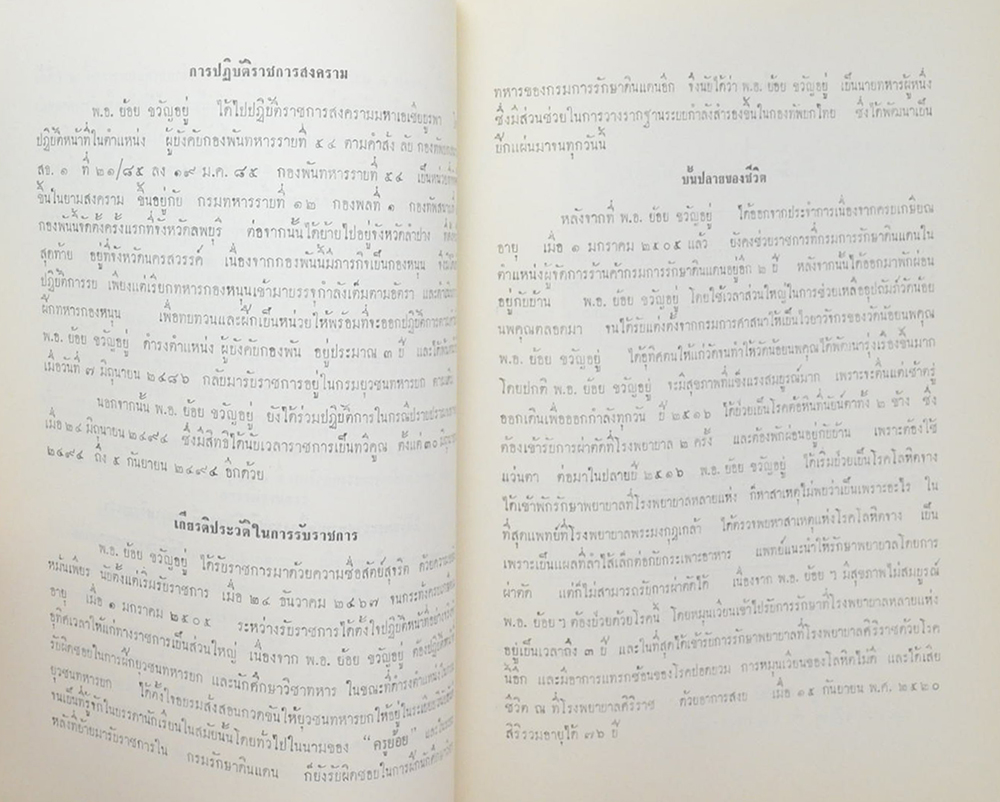 การปฏิบัติราชการสงคราม
พ.อ. ย้อย ขวัญอยู่ ได้ไปปฏิบัติราชการสงครามมหาเอเซียบูรพา
ปฏิบัติหน้าที่ในตำแหน่ง ผู้บังคับกองพันทหารราบที่ ๕๔ ตามคำสั่ง
สข. ๑ ที่ ๒๑/๘๕ ลง ๑๙ ม.ค. ๘๕ กองพันทหารราบที่ ๕๔ เป็นหน่วยที่
ขึ้นในยามสงคราม ขึ้นอยู่กับ กรมทหารราบที่ ๑๒ กองพลที่ ๑
กองพันนี้จัดตั้งครั้งแรกที่จังหวัดลพบุรี ต่อจากนั้นได้ย้ายไปอยู่จังหวัดลำปาง
สุดท้าย อยู่ที่จังหวัดนครสวรรค์ เนื่องจากกองพันนี้มีภารกิจเป็นกองหนุน
ปฏิบัติการรบ เพียงแต่เรียกทหารกองหนุนเข้ามาบรรจุกำลังเต็มตามอัตรา
ฝึกทหารกองหนุน เพื่อทบทวนและฝึกเป็นหน่วยให้พร้อมที่จะออกปฏิบัติการ
พ.อ. ย้อย ขวัญอยู่ ดำรงตำแหน่ง ผู้บังคับกองพัน อยู่ประมาณ ๓ ปี
เมื่อวันที่ ๗ มิถุนายน ๒๔๘๖ กลับมารับราชการอยู่ในกรมยุวชนทหารบก
นอกจากนั้น พ.อ. ย้อย ขวัญอยู่ ยังได้ร่วมปฏิบัติการในกรณี
เมื่อ ๒๙ มิถุนายน ๒๔๙๔ ซึ่งมีสิทธิได้นับเวลาราชการเป็นทวีคูณ ตั้งแต่ ๓๐
๒๔๙๔ ถึง ๕ กันยายน ๒๔๙๔ อีกด้วย
เกียรติประวัติในการรับราชการ
พ.อ. ย้อย ขวัญอยู่ ได้รับราชการมาด้วยความซื่อสัตย์สุจริต
หมั่นเพียร นับตั้งแต่เริ่มรับราชการ เมื่อ ๒๔ ธันวาคม ๒๔๖๗
อายุ เมื่อ ๑ มกราคม ๒๕๐๕ ระหว่างรับราชการได้ตั้งใจปฏิบัติหน้าที่
อุทิศเวลาให้แก่ทางราชการเป็นส่วนใหญ่ เนื่องจาก พ.อ. ย้อย ขวัญอยู่
รับผิดชอบในการฝึกยุวชนทหารบก และนักศึกษาวิชาทหาร ในขณะที่ดำรงตำแหน่ง
ยุวชนทหารบก ได้ตั้งใจอบรมสั่งสอนกวดขันให้ยุวชนทหารบกให้อยู่ในระเบียบ
จนเป็นที่รู้จักในบรรดานักเรียนในสมัยนั้นโดยทั่วไปในนามของ “ครูย้อย”
หลังที่ย้ายมารับราชการใน กรมรักษาดินแดน ก็ยังรับผิดชอบในการฝึก
ทหารของกรมการรักษาดินแดนอีก จึงนับได้ว่า พ.อ. ย้อย ขวัญอยู่ เป็นนายทหารผู้หนึ่ง
ซึ่งมีส่วนช่วยในการวางรากฐานระบบกำลังสำรองขึ้นในกองทัพบกไทย ซึ่งได้พัฒนาเป็น
ปึกแผ่นมาจนทุกวันนี้
บั้นปลายของชีวิต
หลังจากที่ พ.อ. ย้อย ขวัญอยู่ ได้ออกจากประจำการเนื่องจากครบเกษียณ
อายุ เมื่อ ๑ มกราคม ๒๕๐๕ แล้ว ยังคงช่วยราชการที่กรมการรักษาดินแดนใน
ตำแหน่งผู้จัดการร้านค้ากรมการรักษาดินแดนอยู่อีก ๒ ปี หลังจากนั้นได้ออกมาพักผ่อน
อยู่กับบ้าน พ.อ. ย้อย ขวัญอยู่ โดยใช้เวลาส่วนใหญ่ในการช่วยเหลืออุปถัมภ์วัดน้อย
นพคุณตลอดมา จนได้รับแต่งตั้งจากกรมการศาสนาให้เป็นไวยาวัจกรของวัดน้อยนพคุณ
พ.อ. ย้อย ขวัญอยู่ ได้อุทิศตนให้แก่วัดจนทำให้วัดน้อยนพคุณได้พัฒนารุ่งเรืองขึ้นมาก
โดยปกติ พ.อ. ย้อย ขวัญอยู่ จะมีสุขภาพที่แข็งแรงสมบูรณ์มาก เพราะจะตื่นแต่เช้าตรู่
ออกเดินเพื่อออกกำลังทุกวัน ปี ๒๕๑๖ ได้ป่วยเป็นโรคต้อหินที่นัยน์ตาทั้ง ๒ ข้าง ซึ่ง
ต้องเข้ารับการผ่าตัดที่โรงพยาบาล ๒ ครั้ง และต้องพักผ่อนอยู่กับบ้าน เพราะต้องใช้
แว่นตา ต่อมาในปลายปี ๒๕๑๖ พ.อ. ย้อย ขวัญอยู่ ได้เริ่มป่วยเป็นโรคโลหิตจาง
ได้เข้าพักรักษาพยาบาลที่โรงพยาบาลหลายแห่ง ก็หาสาเหตุไม่พบว่าเป็นเพราะอะไร ใน
ที่สุดแพทย์ที่โรงพยาบาลพระมงกุฎเกล้า ได้ตรวจพบหาสาเหตุแห่งโรคโลหิตจาง เป็น
เพราะเป็นแผลที่ลำไส้เล็กต่อกับกระเพาะอาหาร แพทย์แนะนำให้รักษาพยาบาลโดยการ
ผ่าตัด แต่ก็ไม่สามารถรับการผ่าตัดได้ เนื่องจาก พ.อ. ย้อย ฯ มีสุขภาพไม่สมบูรณ์
พ.อ. ย้อย ฯ ต้องป่วยด้วยโรคนี้ โดยหมุนเวียนเข้าไปรับการรักษาที่โรงพยาบาลหลายแห่ง
อยู่เป็นเวลาถึง ๓ ปี และในที่สุดได้เข้ารับการรักษาพยาบาลที่โรงพยาบาลศิริราชด้วยโรค
นี้อีก และมีอาการแทรกซ้อนของโรคปอดบวม การหมุนเวียนของโลหิตไม่ดี และได้เสีย
ชีวิต ณ ที่โรงพยาบาลศิริราช ด้วยอาการสงบ เมื่อ ๑๕ กันยายน พ.ศ. ๒๕๒๐
สิริรวมอายุได้ ๗๖ ปี